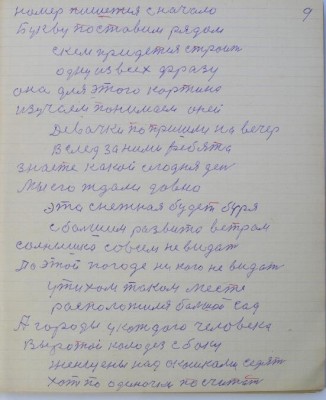 9
номер пишется сначало
Букву поставим рядом
с кем придется строит
одну из всех фразу
она для этого картина
изучаем понимаем с ней
Девачки попришли на вечер
Вслед за ними ребята
знаете какой сегодня ден
Мы его ждали давно
Это снежная будет буря
с большим развито ветром
солнышко совсем не видат
По этой погоде ни кого не видат
у тихом таком месте
расположила большой сад
А городы у каждого человека
Вырытой колодез с боку
женсцены над окошками сидят
Хот по одиночки посчитат